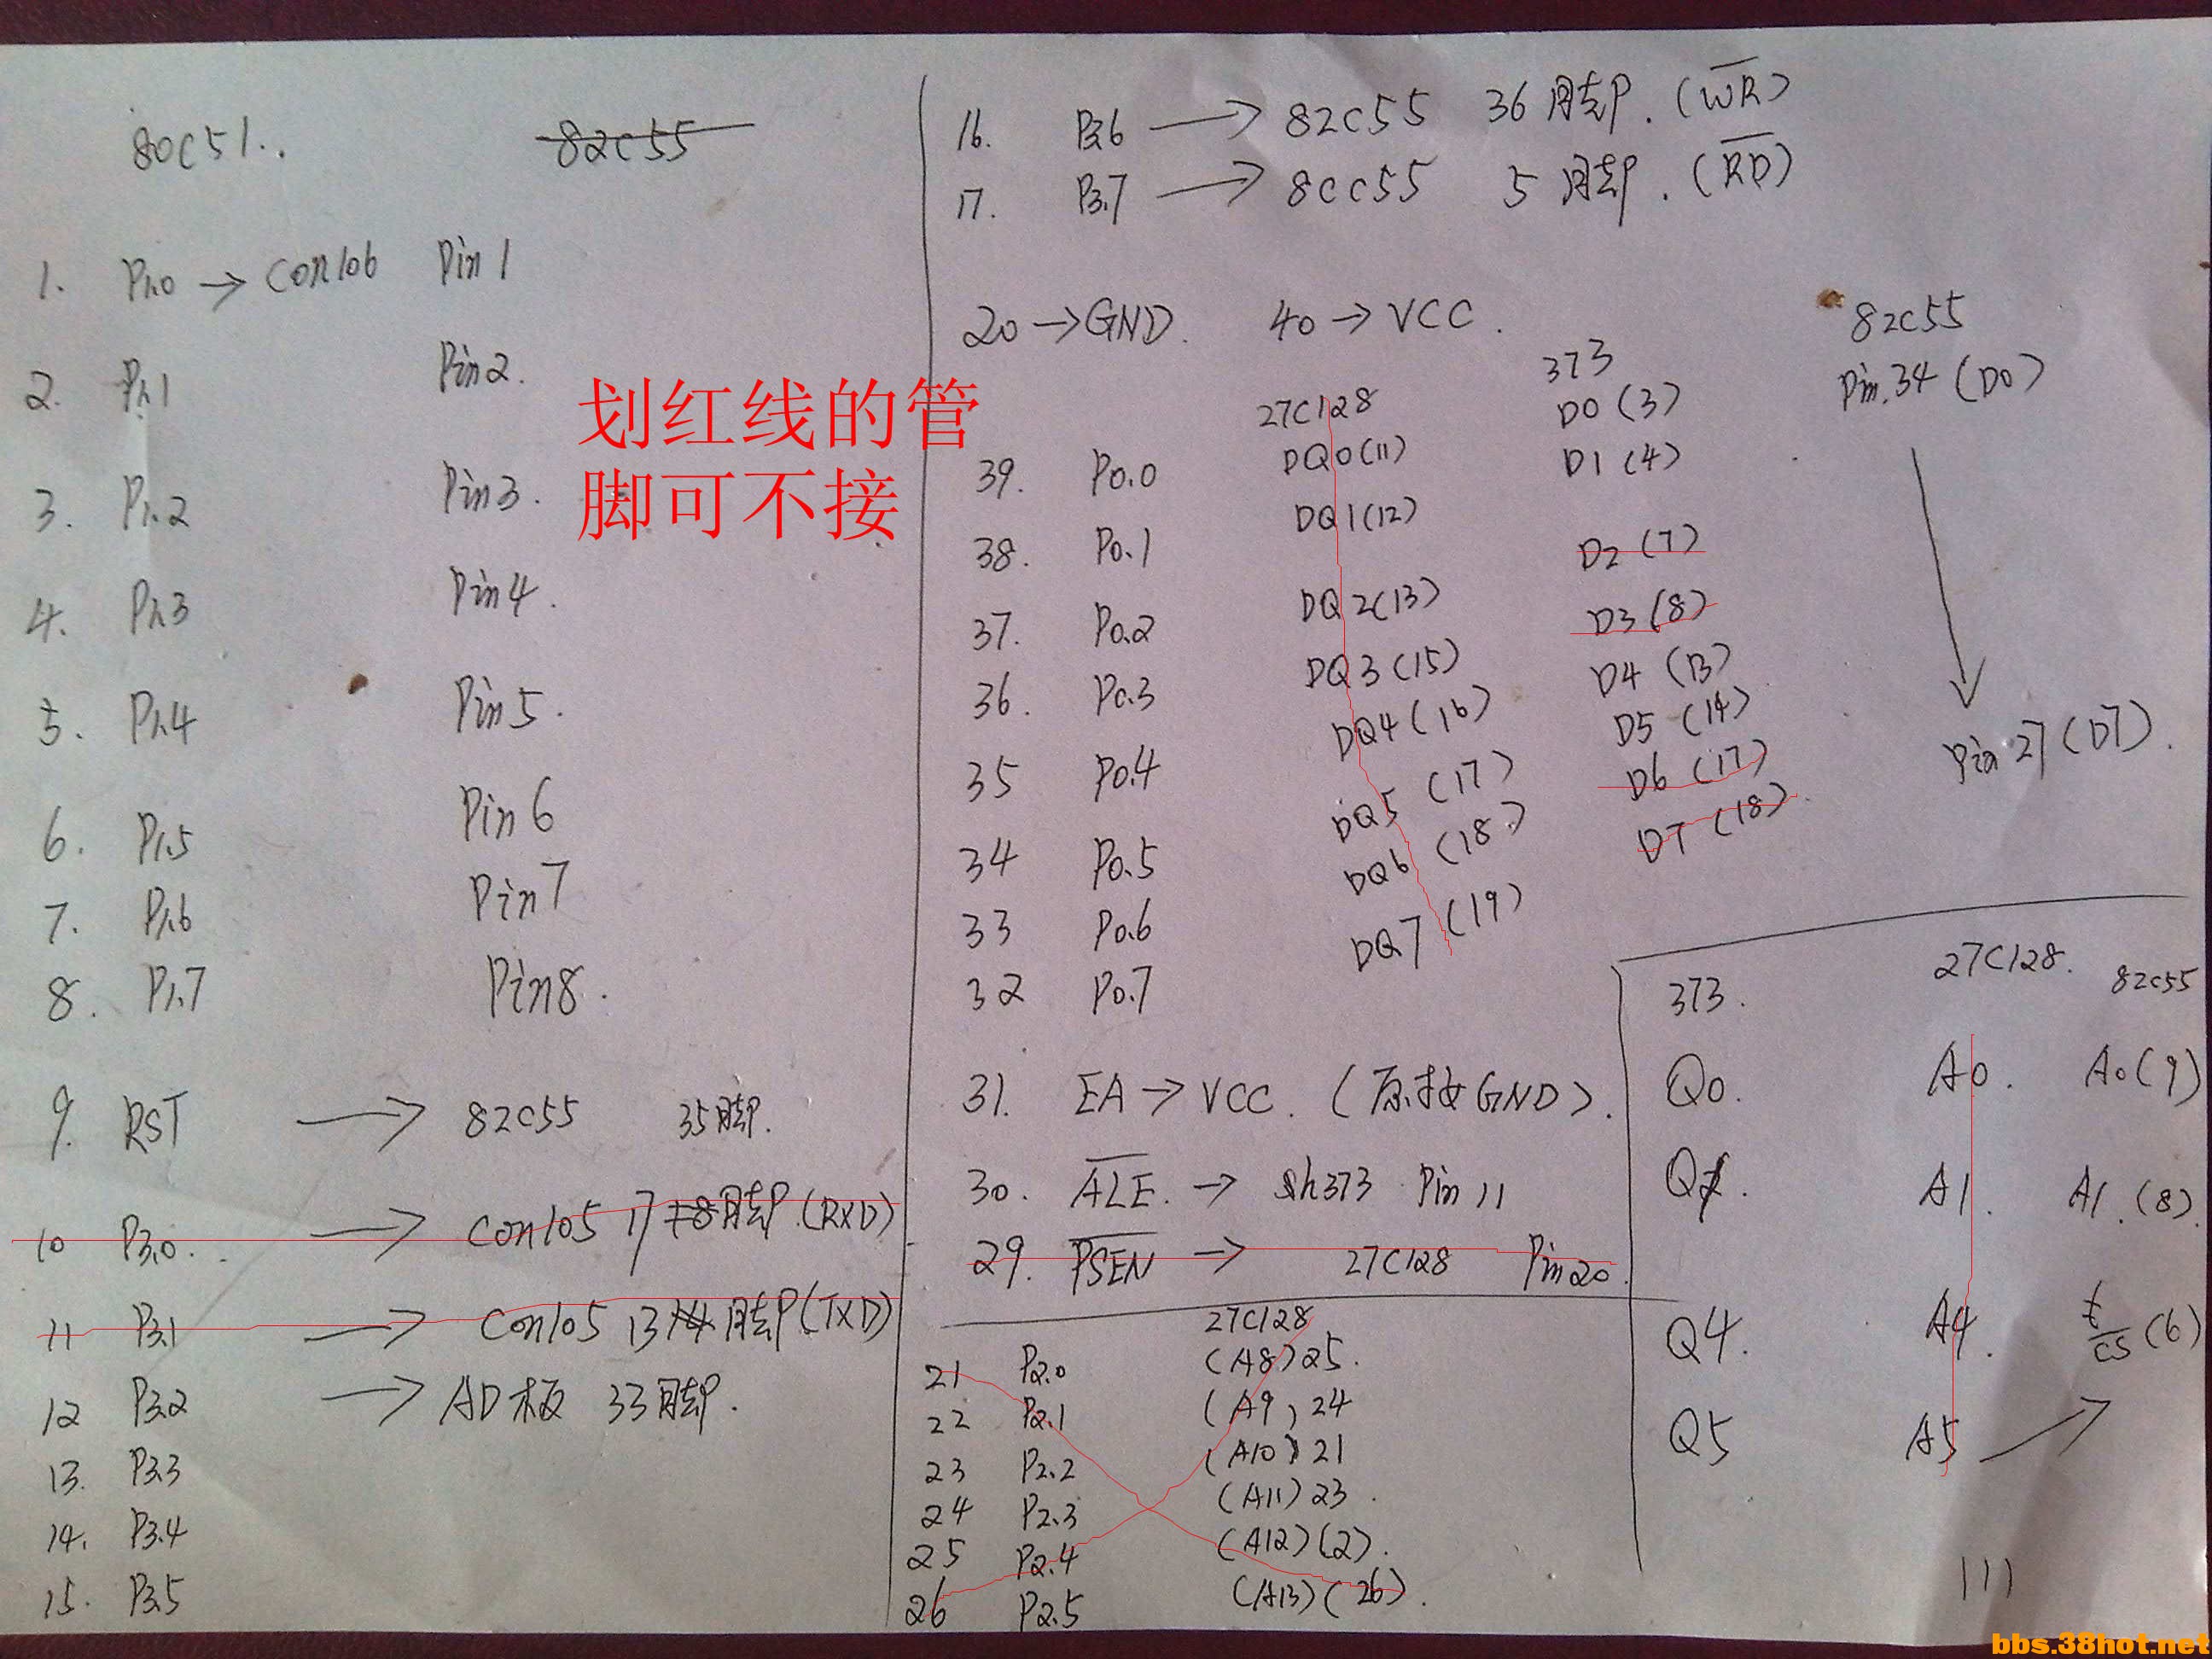 80C51..
82C55
1. P1.0 → Con106 Pin 1
2. P1.1 Pin2.
3. P1.2 Pin3.
4. P1.3 Pin4.
5. P1.4 Pin5.
6. P1.5 Pin6
7. P1.6 Pin7
8. P1.7 Pin8.
9. RST → 82C55 35脚.
10 P3.0. → Con105 17 脚.(RXD)
11 P3.1 → Con105 13 脚(TXD)
12 P3.2 → AD板 33脚.
13. P3.3
14. P3.4
15. P3.5
划红线的管
脚可不接
16. P3.6 → 82C55 36脚.(WR)
17. P3.7 → 8CC55 5脚.(RD)
20 → GND. 40 → VCC.
27C128 373 82C55
D0(3) Pin.34(D0)
39. P0.0 DQ0(11) D1(4)
38. P0.1 DQ1(12) D2(7)
37. P0.2 DQ2(13) D3(8)
36. P0.3 DQ3(15) D4(13)
35 P0.4 DQ4(16) D5(14)
34 P0.5 DQ5(17) D6(17) Pin27(D7).
33 P0.6 DQ6(18) D7(18)
32 P0.7 DQ7(19)
31. EA → VCC.(原接GND).
30. ALE. → sh373 Pin 11
29. PSEN → 27C128 Pin20.
27C128
21 P2.0 (A8)25.
22 P2.1 (A9)24
23 P2.2 (A10)21
24 P2.3 (A11)23.
25 P2.4 (A12)(2).
26 P2.5 (A13)(26).
373. 27C128. 82C55
Q0. A0. A0(9)
Q1. A1. A1.(8).
Q4. A4. CS(6)
Q5 A5
111
bbs.38hot.net